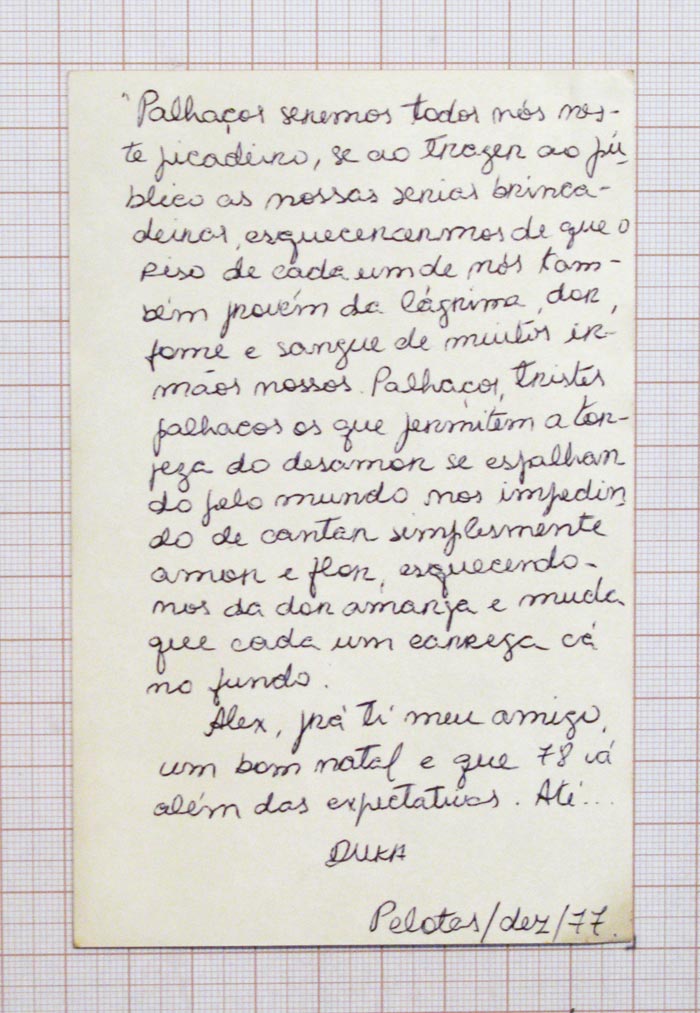 "Palhaços seremos todos nós nes-
te picadeiro, se ao trazer ao pú-
blico as nossas serias brinca-
deiras, esquecencermos de que o
riso de cada um de nós tam-
bém provém da lágrima, dor,
fome e sangue de muitos ir-
mãos nossos. Palhaços, tristes
palhacos os que permitem a tor-
peza do desamor se espalhan
do pelo mundo nos impedin
do de cantar simplesmente
amor e flor, esquecendo-
nos da dor amarga e muda
que cada um carrega cá
no fundo.
Alex, prá ti meu amigo,
um bom natal e que 78 vá
além das expectativas. Até...
DUKA
Pelotas/dez/77.